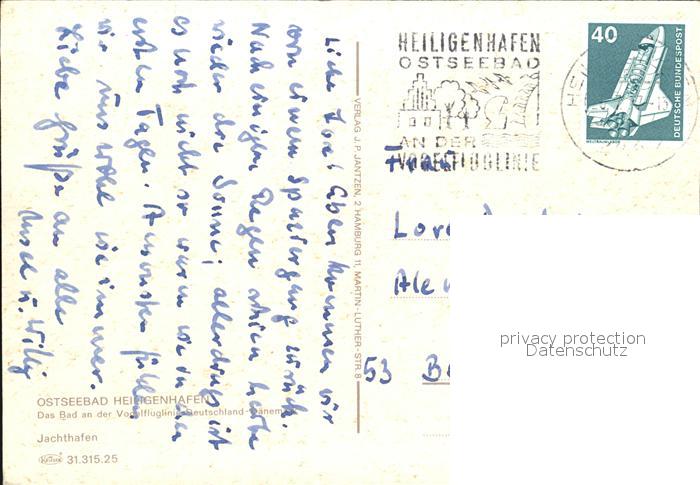 Liebe Lore! Eben kommen wir
von einem Spaziergang zurück.
Nach einigen Regen schien heute
wieder die Sonne, allerdings ist
es noch nicht so warm wie in den
ersten Tagen. Ansonsten fühlen
wir uns wohl wie immer.
Liebe Grüße an alle
Ursel u. Willy
VERLAG J. P. JANTZEN, 2 HAMBURG 11, MARTIN-LUTHER-STR. 8
HEILIGENHAFEN
OSTSEEBAD
AN DER
VOGELFLUGLINIE
40
DEUTSCHE BUNDESPOST
WELTRAUMLABOR
Frau
Lore
53
privacy protection
Datenschutz
OSTSEEBAD HEILIGENHAFEN
Das Bad an der Vogelfluglinie Deutschland-Dänemark
Jachthafen
Krüger 31.315.25